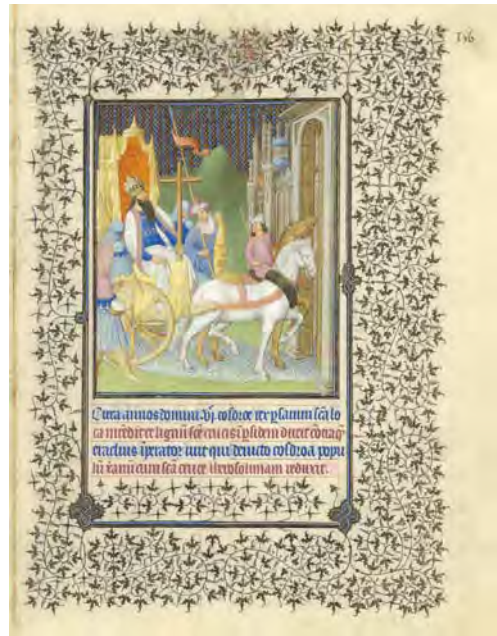 156
Circa annos domini .vj. cosdroe rex psarum scā lo
ca incēdit et lignū scē crucis ī psidem duxit cōtra q̄
eraclius īperator iuit qui deuicto cosdroa popu
lū cum scā cruce iherosolimam reduxit.